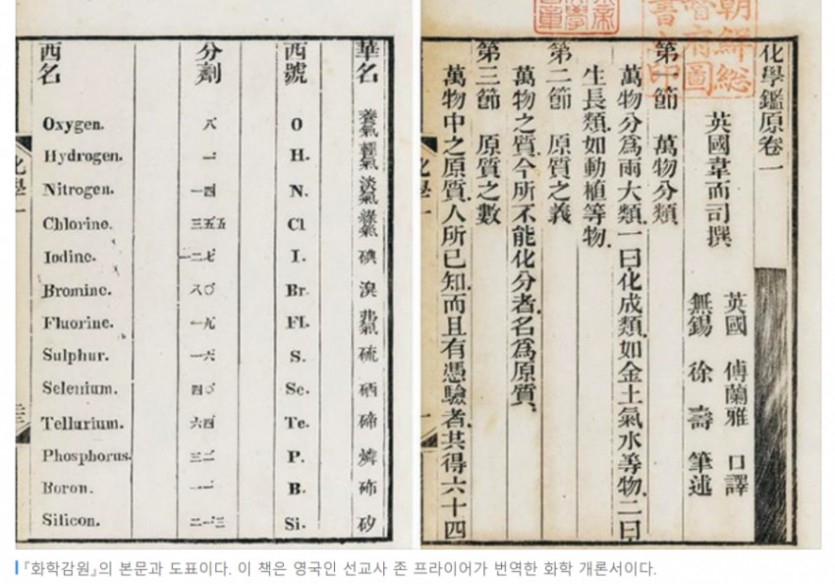 朝鮮總
督府圖
書之印
化學鑑原卷一
英國韋而司撰
英國 傅蘭雅 口譯
無錫 徐壽 筆述
第一節 萬物分類
萬物分爲兩大類一曰化成類如金土氣水等物二曰
生長類如動植等物
第二節 原質之義
萬物之質今所不能化分者名爲原質
第三節 原質之數
萬物中之原質人所已知而且有憑驗者共得六十四
西名 分劑 西號 華名
Oxygen. 八 O 養氣
Hydrogen. 一 H. 輕氣
Nitrogen. 一四 N. 淡氣
Chlorine. 三五五 Cl 綠氣
Iodine. 一二七 I. 碘
Bromine. 八〇 Br. 溴
Fluorine. 一九 Fl. 弗氣
Sulphur. 一六 S. 硫
Selenium. 四〇 Se. 硒
Tellurium. 六四 Te. 碲
Phosphorus. 三二 P. 燐
Boron. 一一 B.
Silicon. 二一三 Si. 矽
『화학감원』의 본문과 도표이다. 이 책은 영국인 선교사 존 프라이어가 번역한 화학 개론서이다.